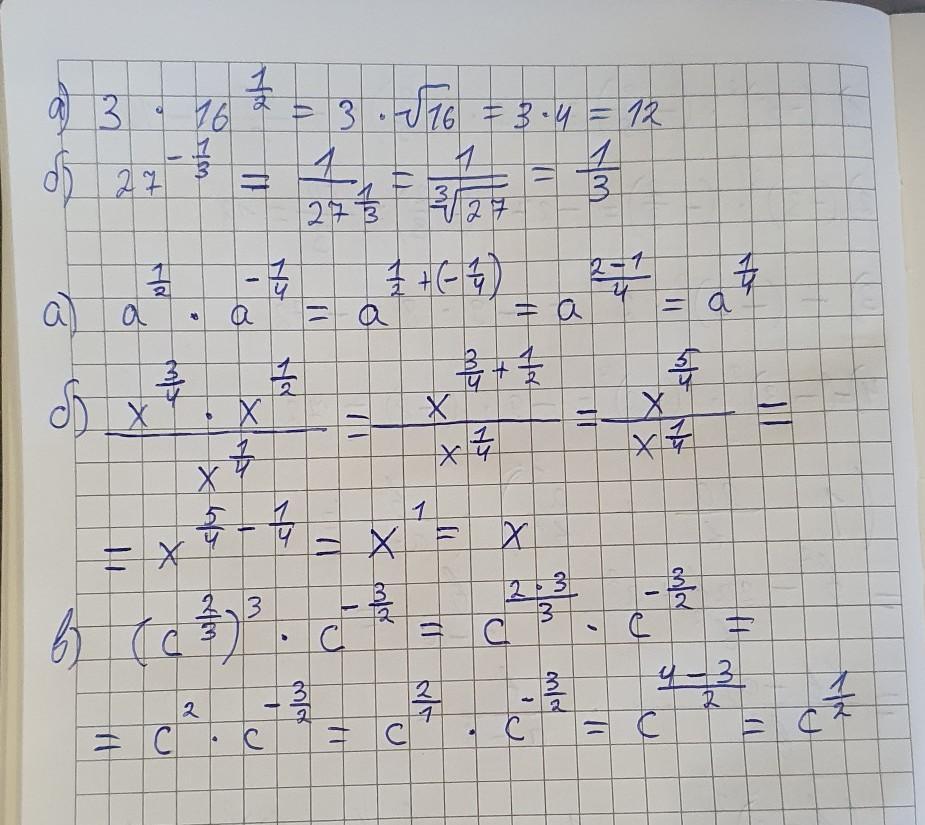 а) 3 · 16^(1/2) = 3 · √16 = 3·4 = 12
б) 27^(-1/3) = 1/27^(1/3) = 1/∛27 = 1/3
а) a^(1/2) · a^(-1/4) = a^(1/2+(-1/4)) = a^((2-1)/4) = a^(1/4)
б) (x^(3/4) · x^(1/2))/x^(1/4) = x^(3/4+1/2)/x^(1/4) = x^(5/4)/x^(1/4) =
= x^(5/4-1/4) = x^1 = x
в) (c^(2/3))^3 · c^(-3/2) = c^((2·3)/3) · c^(-3/2) =
= c^2 · c^(-3/2) = c^(2/1) · c^(-3/2) = c^((4-3)/2) = c^(1/2)